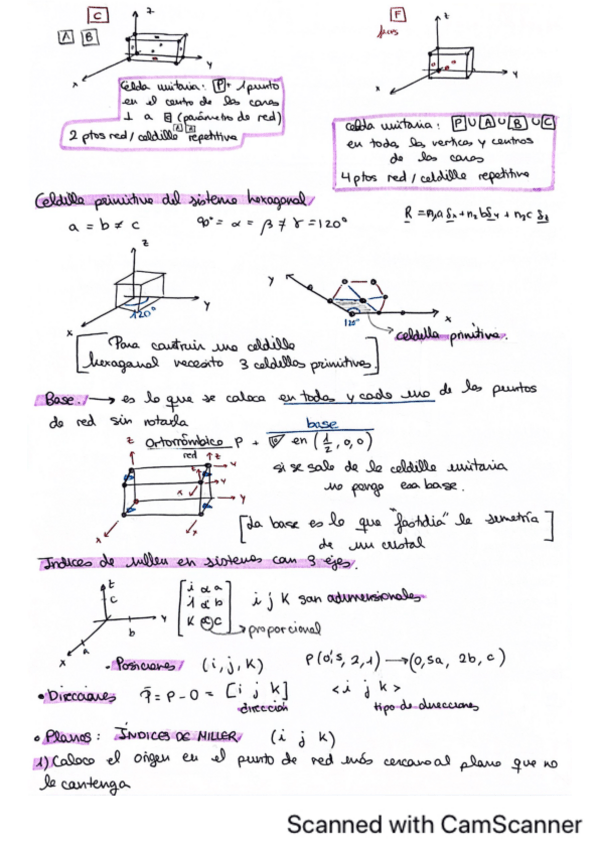 C
z
A B
y
x
Celda unitaria: P + 1 punto
en el centro de las caras
⊥ a c (parámetro de red)
2 ptos red / celdilla repetitiva
F
z
y
x
celda unitaria: P ∪ A ∪ B ∪ C
en todos los vertices y centros
de las caras
4 ptos red / celdilla repetitiva
Celdilla primitiva del sistema hexagonal
a = b ≠ c 90° = α = β ≠ γ = 120°
z
y
x
120°
y
x
120°
celdilla primitiva.
[Para construir una celdilla
hexagonal necesito 3 celdillas primitivas.]
Base. → es lo que se coloca en todos y cada uno de los puntos
de red sin rotarla
base
Ortorrómbico P + en (1/2, 0, 0)
red
z
y
x
si se sale de la celdilla unitaria
no pongo esa base.
[La base es lo que "fastidia" la simetría
de un cristal]
Indices de miller en sistemas con 3 ejes.
z
c
y
b
x
a
i α a
j α b
k α c
→ proporcional
i j k son adimensionales
• Posiciones (i, j, k) P(0's, 2, 1) → (0,5a, 2b, c)
• Direcciones = P - O = [i j k] < i j k >
dirección tipo de direcciones
• Planos: ÍNDICES DE MILLER (i j k)
1) Coloco el origen en el punto de red más cercano al plano que no
lo contenga
Scanned with CamScanner